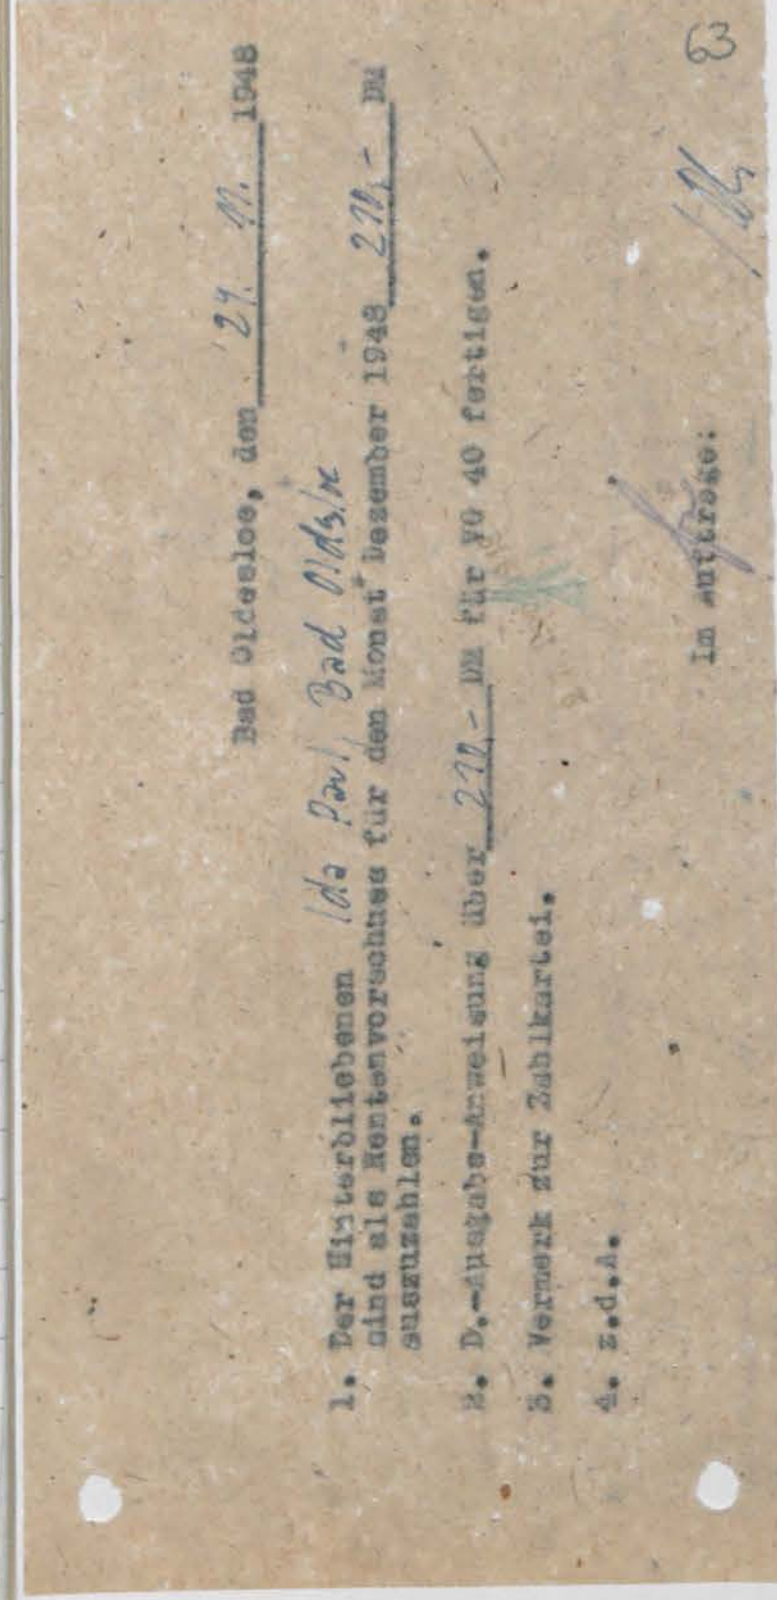 Bad Oldesloe, den 29. 11. 1948
1. Der Hinterbliebenen Ida Paul, Bad
sind als Rentenvorschuss für den Monat Dezember 1948 270,- DM
auszuzahlen.
2. D.-Ausgabe-Anweisung über 270,- DM für VO 40 fertigen.
3. Vermerk zur Zahlkartei.
4. z.d.A.
Im Auftrage: